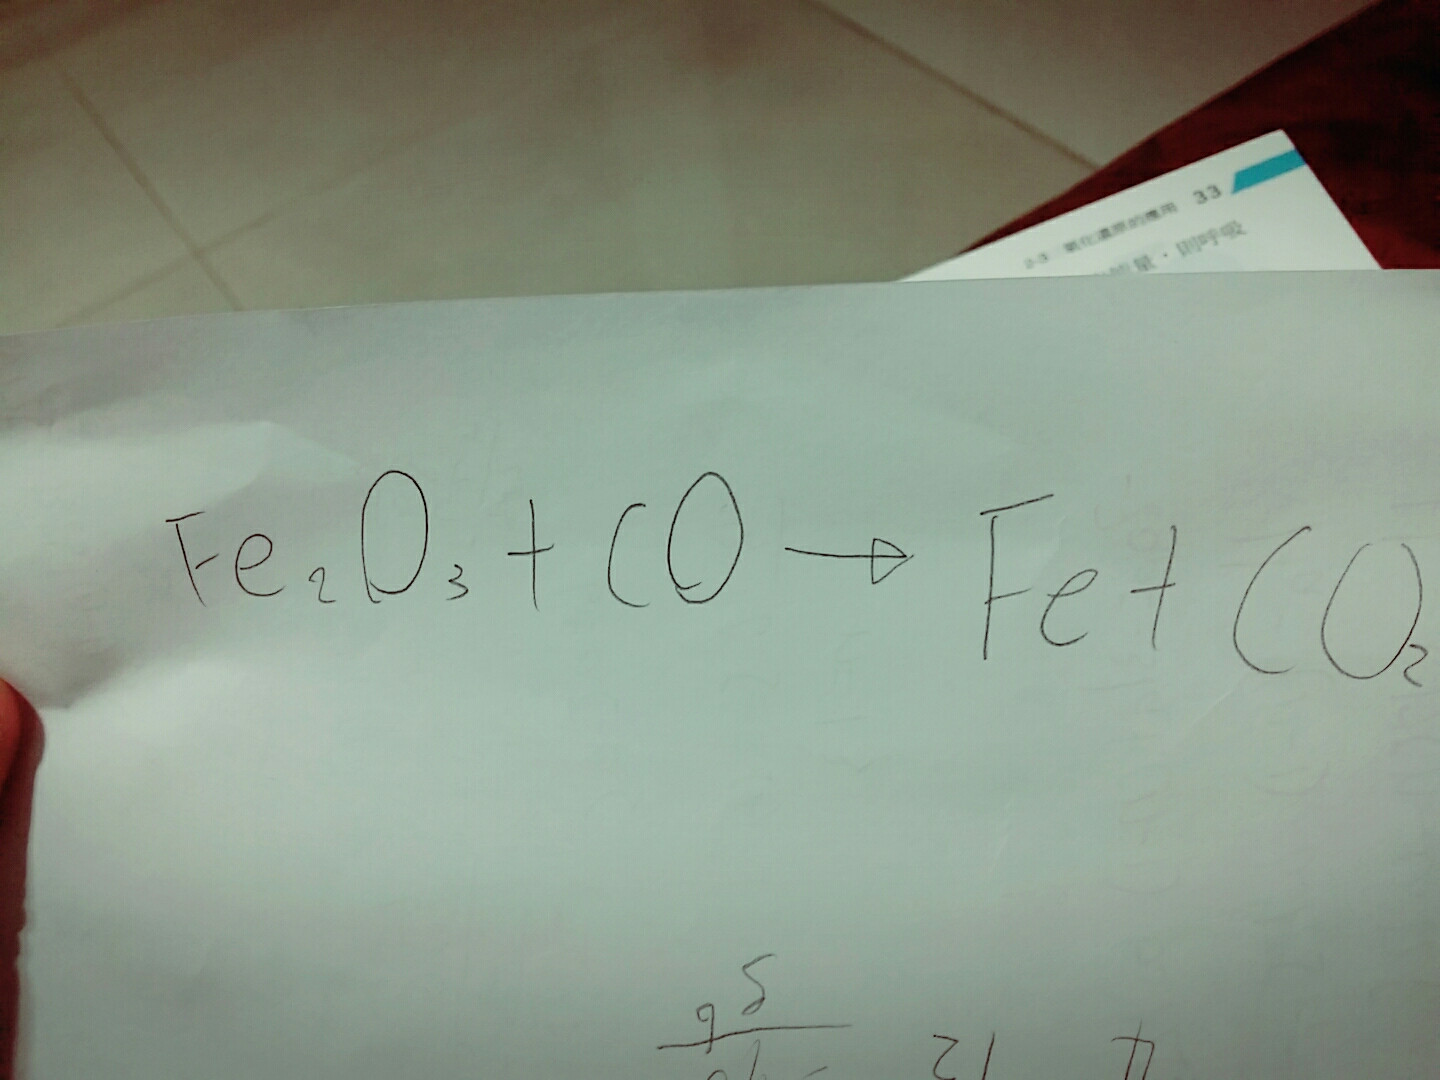 2-3 氧化還原的應用 33
能量，則呼吸
Fe₂O₃ + CO → Fe + CO₂